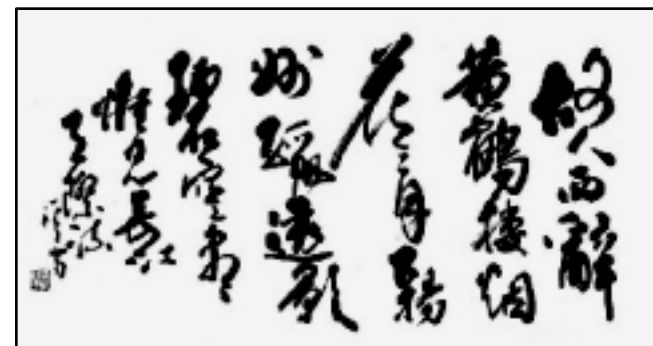 故人西辭
黄鶴楼烟
花三月下揚
州孤帆遠影
碧空尽
惟見長江
天際流